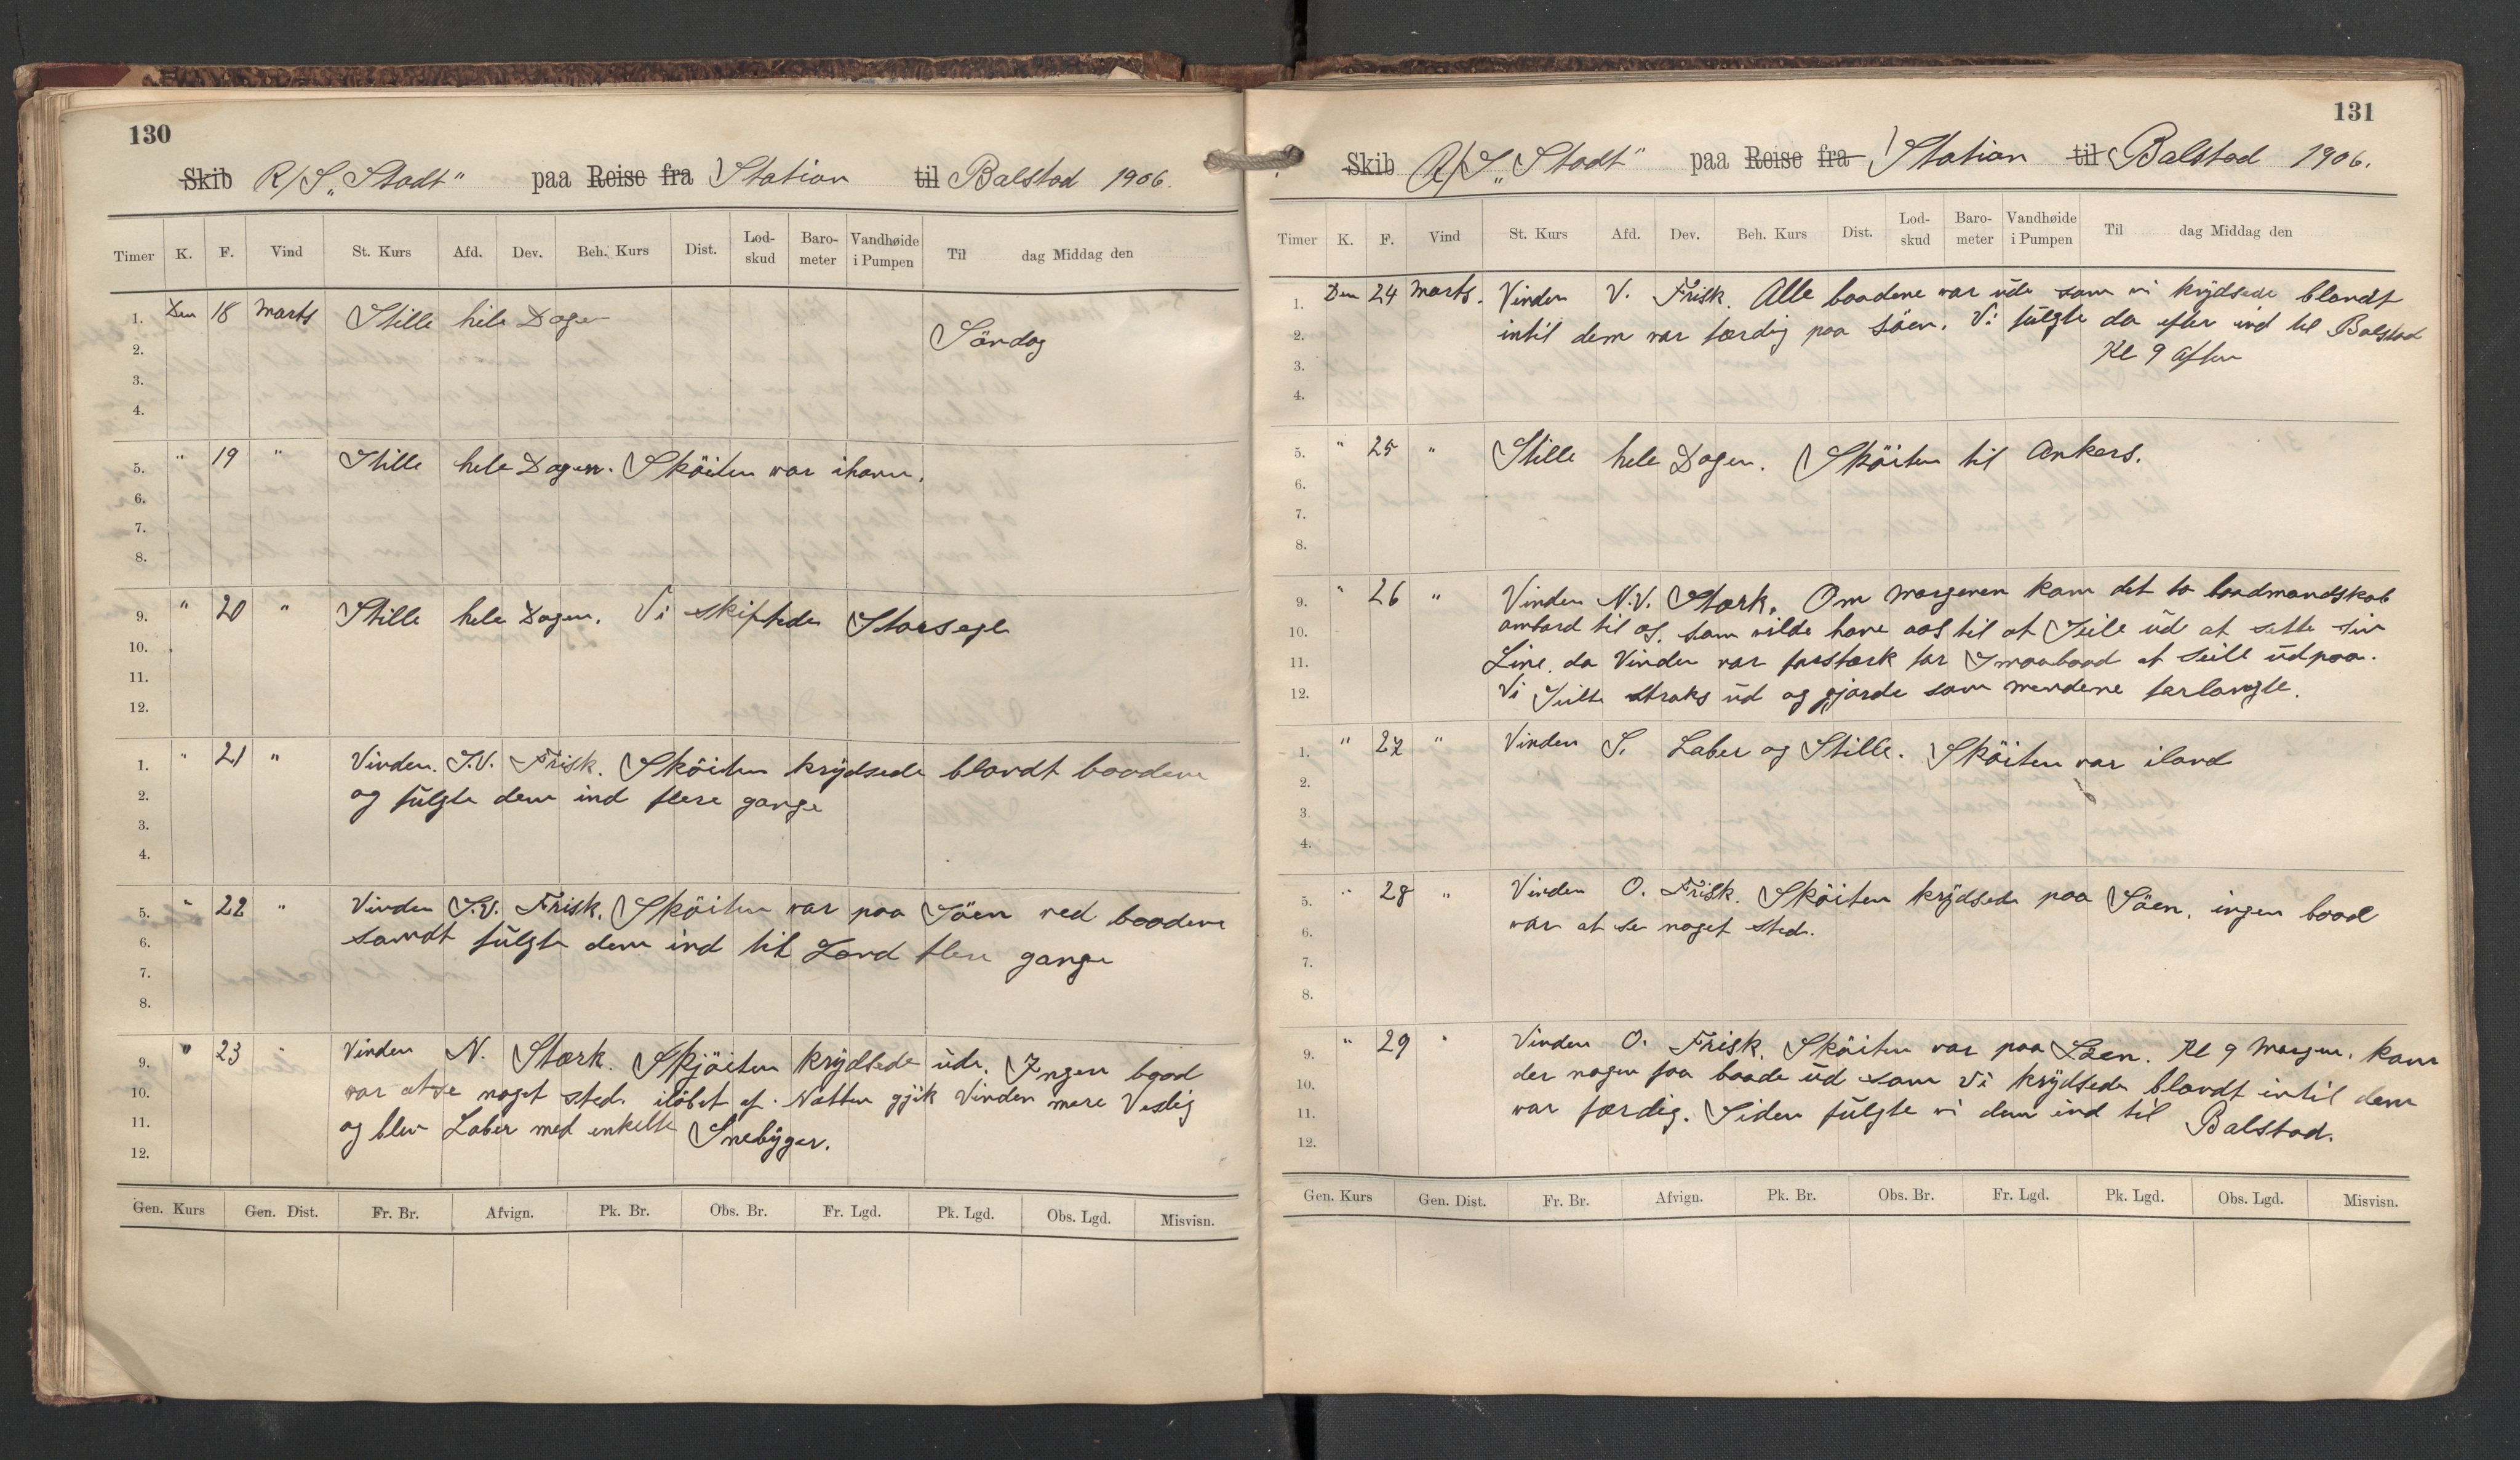 130
Skib R/S „Stadt" paa Reise fra Station til Balstad 1906.
Timer K. F. Vind St. Kurs Afd. Dev. Beh. Kurs Dist. Lod-skud Baro-meter Vandhøide i Pumpen Til dag Middag den
1. Den 18 Marts Stille hele Dagen
2. Söndag
3.
4.
5. " 19 " Stille hele Dagen. Sköiten var ihavn.
6.
7.
8.
9. " 20 " Stille hele Dagen. Vi skiftede Storsegl
10.
11.
12.
1. " 21 " Vinden. S.V. Frisk. Sköiten krydsede blandt baadene
2. og fulgte dem ind flere gange
3.
4.
5. " 22 " Vinden S.V. Frisk. Sköiten var paa Söen ved baadene
6. samdt fulgte dem ind til Land flere gange
7.
8.
9. " 23 " Vinden N. Stærk. Skjöiten krydsede ude. Ingen baad
10. var at se noget sted. iløbet af Natten gjik Vinden mere Vestlig
11. og blev Laber med enkelte Snebyger.
12.
Gen. Kurs Gen. Dist. Fr. Br. Afvign. Pk. Br. Obs. Br. Fr. Lgd. Pk. Lgd. Obs. Lgd. Misvisn.
131
Skib R/S „Stadt" paa Reise fra Station til Balstad 1906.
Timer K. F. Vind St. Kurs Afd. Dev. Beh. Kurs Dist. Lod-skud Baro-meter Vandhøide i Pumpen Til dag Middag den
1. Den 24 Marts. Vinden V. Frisk. Alle baadene var ude som vi krydsede blandt
2. intil dem var færdig paa Söen. Vi fulgte da efter ind til Balstad
3. Kl 9 Aften
4.
5. " 25 " Stille hele Dagen. Sköiten til Ankers.
6.
7.
8.
9. " 26 " Vinden N.V. Stærk. Om Morgenen kom det to baadmandskab
10. ombord til os. som vilde have oos til at Seile ud at sette sin
11. Line. da Vinden var forstærk for Smaabaad at Seile udpaa.
12. Vi Seilte straks ud og gjorde som mendene forlangte.
1. " 27 " Vinden S. Laber og Stille. Sköiten var iland
2.
3.
4.
5. " 28 " Vinden O. Frisk. Sköiten krydsede paa Söen. ingen baad
6. var at se noget sted.
7.
8.
9. " 29 " Vinden O. Frisk. Sköiten var paa Söen. Kl 9 Morgen. kom
10. der nogen faa baade ud som Vi krydsede blandt intil dem
11. var færdig. Siden fulgte vi dem ind til Balstad.
12.
Gen. Kurs Gen. Dist. Fr. Br. Afvign. Pk. Br. Obs. Br. Fr. Lgd. Pk. Lgd. Obs. Lgd. Misvisn.